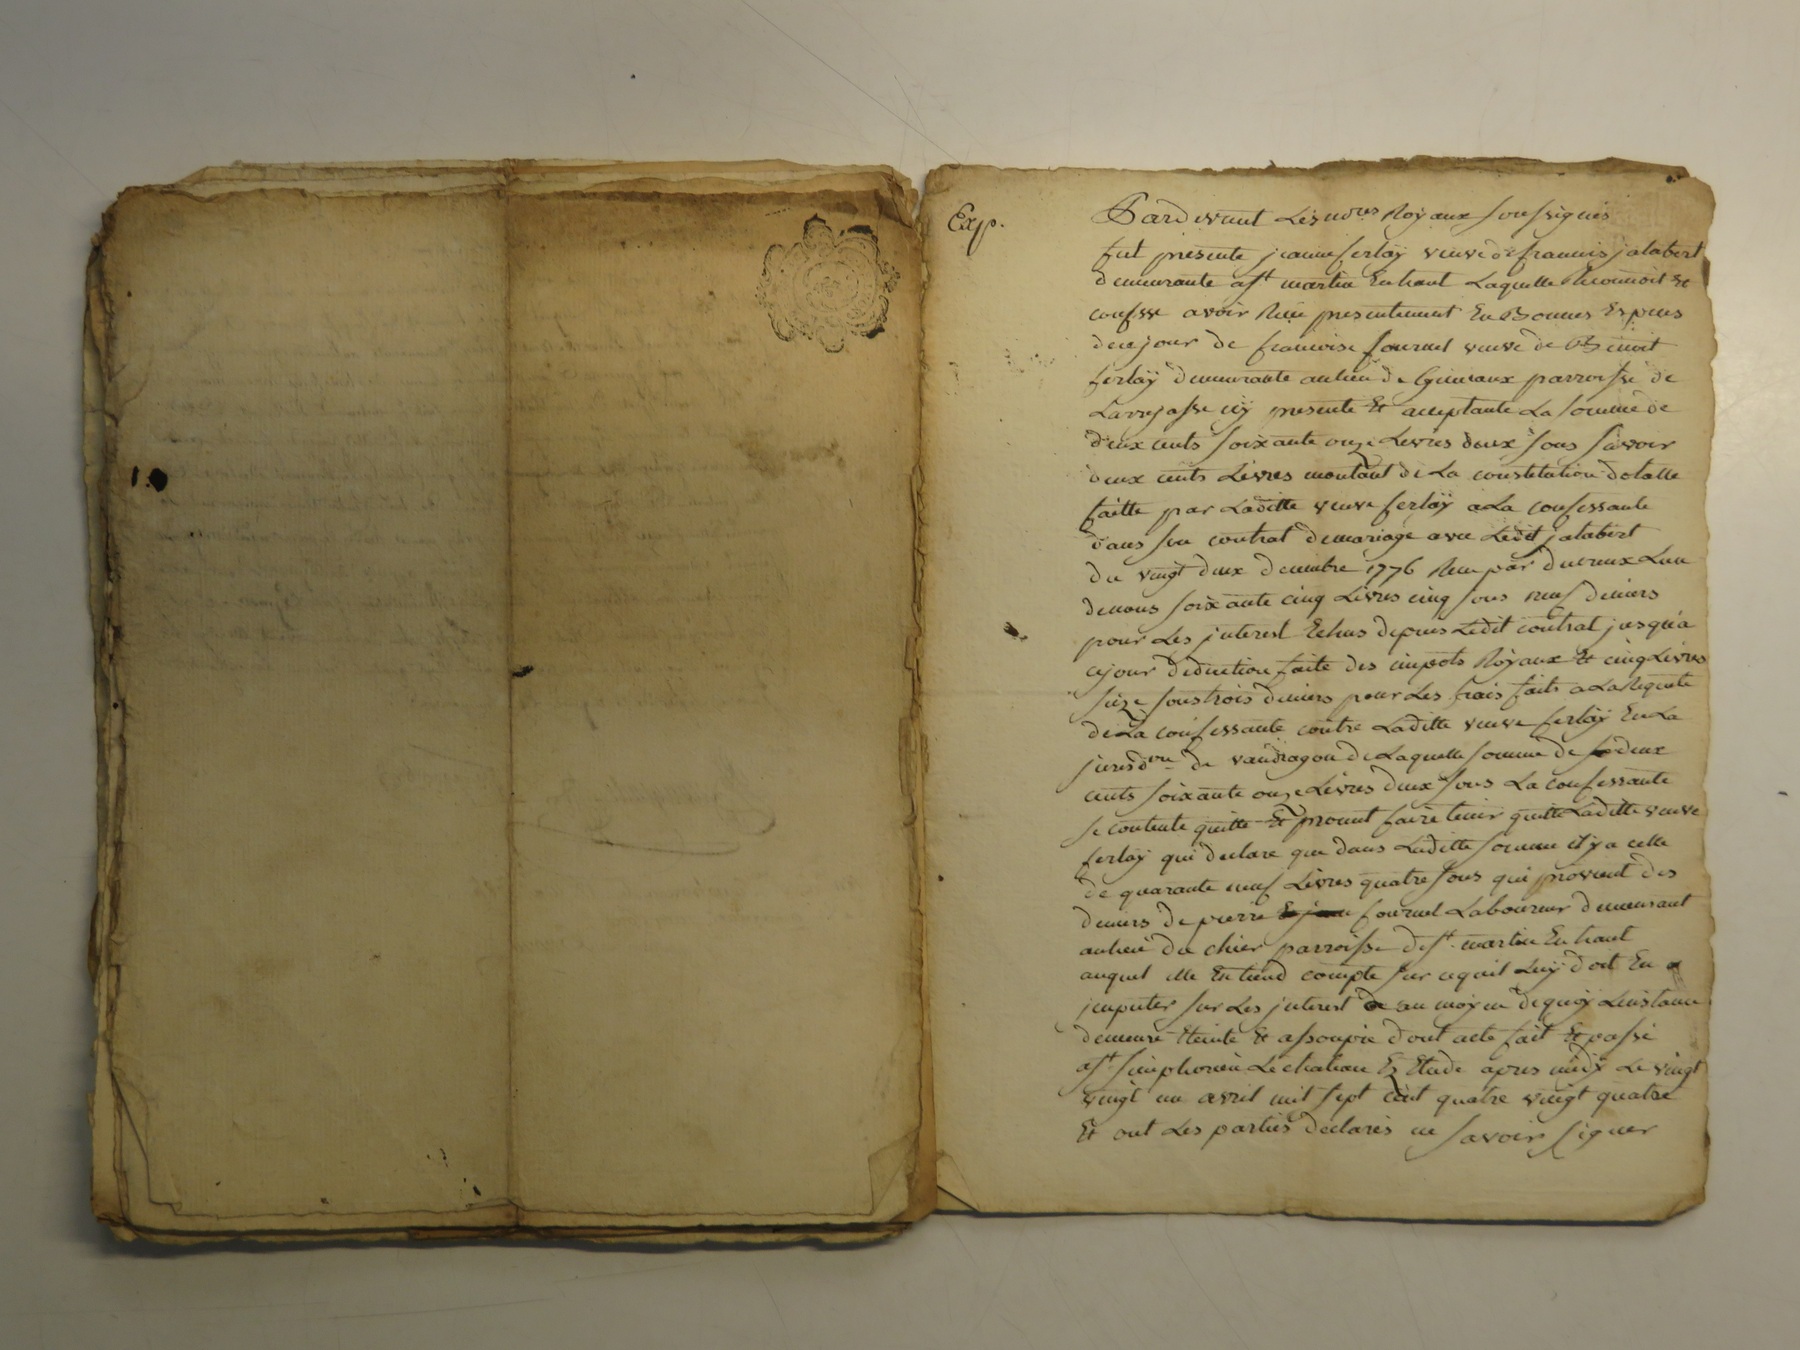 Exp.
Pardevant Les no.res Royaux soussignés
fut presente jeanne ferlaÿ veuve de francois jalabert
demeurante a st martin En haut Laquelle Reconnoit Et
confesse avoir Recu presentement En Bonnes Especes
de ce jour de francoise fournel veuve de Benoit
ferlaÿ demeurante au lieu de parroisse de
Larrajasse icÿ presente Et acceptante La somme de
deux cents soixante onze Livres deux sous savoir
deux cents Livres montant de La constitution dotalle
faitte par Laditte veuve ferlaÿ a La confessante
dans son contrat de mariage avec Ledit jalabert
du vingt deux decembre 1776 Recu par ducreux Lun
de nous soixante cinq Livres cinq sous neuf deniers
pour Les jnterest Echus depuis Ledit contrat jusqu'a
ce jour deduction faite des impots Royaux Et cinq Livres
seize sous trois deniers pour Les frais faits a La Requete
de La confessante contre Laditte veuve ferlaÿ En La
jurisd.on de vaudragon de Laquelle somme de deux
cents soixante onze Livres deux sous La confessante
se contente quitte Et promet faire tenir quitte Laditte veuve
ferlaÿ qui declare que dans Laditte somme il y a celle
de quarante neuf Livres quatre sous qui provient des
deniers de pierre fournel Laboureur demeurant
au lieu du chier parroisse de st. martin En haut
auquel elle En tiend compte sur ce quil Luÿ doit En
jmputer sur Les jnterest au moyen de quoÿ Linstance
demeure Eteinte Et assoupie dont acte fait Et passé
a st simphorien Le chateau Ez Etude apres midÿ Le vingt
vingt un avril mil sept cent quatre vingt quatre
Et ont Les parties declarés ne savoir signer